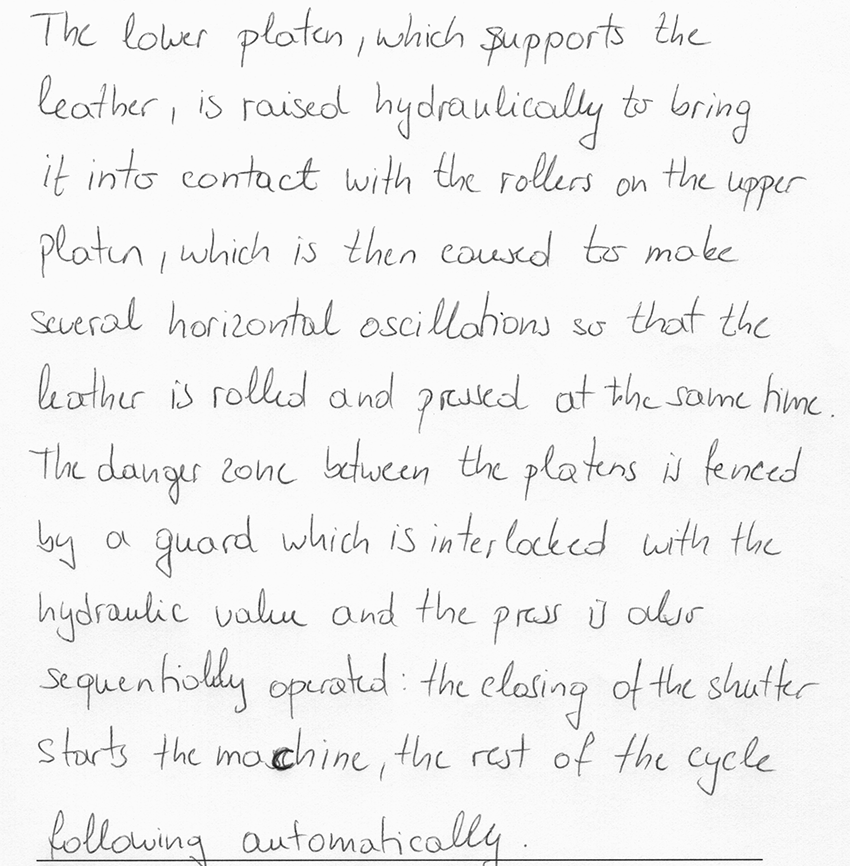 The lower platen, which supports the
leather, is raised hydraulically to bring
it into contact with the rollers on the upper
platen, which is then caused to make
several horizontal oscillations so that the
leather is rolled and pressed at the same time.
The danger zone between the platens is fenced
by a guard which is interlocked with the
hydraulic value and the press is also
sequentially operated: the closing of the shutter
starts the machine, the rest of the cycle
following automatically.